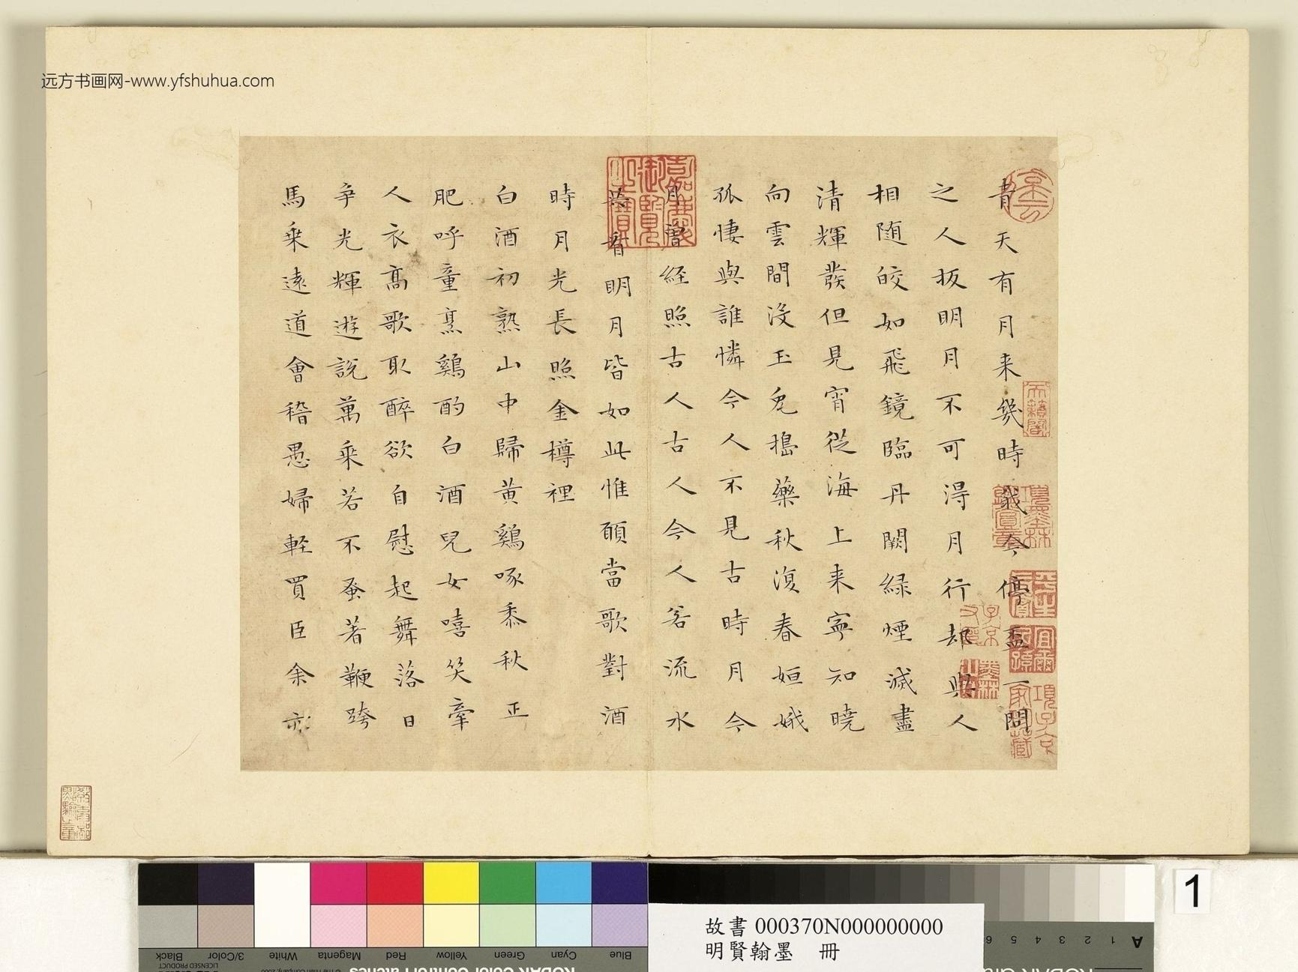 远方书画网-www.yfshuhua.com
青天有月来幾時我今停盃一問
之人扳明月不可得月行却與人
相随皎如飛鏡臨丹闕緑煙滅盡
清輝發但見宵從海上来寧知曉
向雲間没玉兔搗藥秋復春姮娥
孤悽與誰憐今人不見古時月今
月曾經照古人古人今人若流水
共看明月皆如此惟願當歌對酒
時月光長照金樽裡
白酒初熟山中歸黄鷄啄黍秋正
肥呼童烹鷄酌白酒兒女嘻笑牽
人衣高歌取醉欲自慰起舞落日
争光輝遊說萬乘若不蚤著鞭跨
馬乗遠道會稽愚婦軽買臣余亦
嘉慶御覽之寶
天籟閣
項子京家珍藏
故書 000370N000000000
明賢翰墨 冊
1
Blue
Cyan
Green
Yellow
Red
Magenta
White
3/Color
Black
LICENSED PRODUCT
A 1 2 3 4 5 6